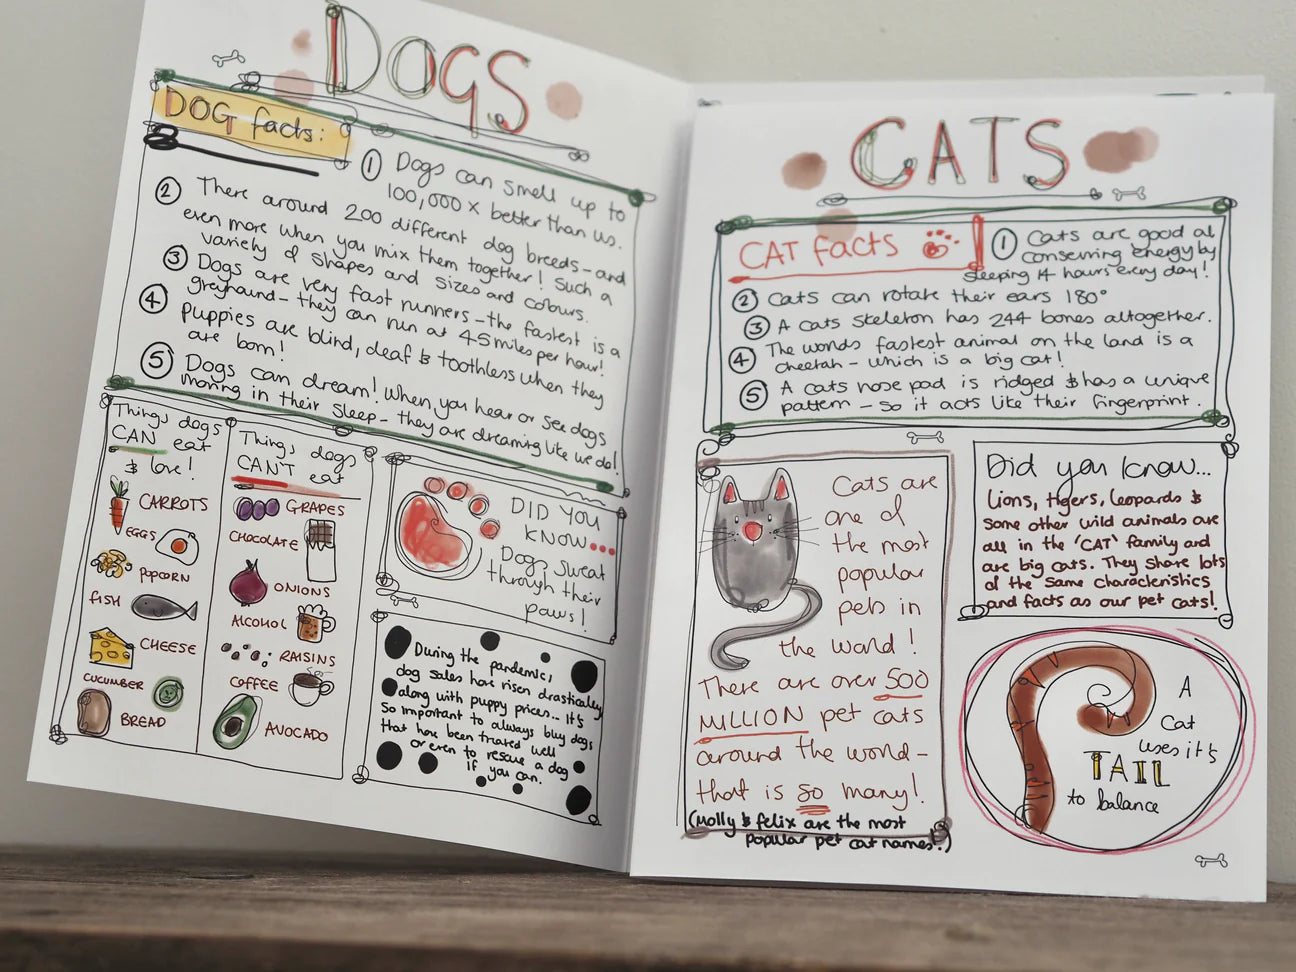 DOGS
DOG facts:
① Dogs can smell up to
100,000 x better than us.
② There around 200 different dog breeds – and
even more when you mix them together! Such a
variety of shapes and sizes and colours.
③ Dogs are very fast runners – the fastest is a
greyhound – they can run at 45 miles per hour!
④ Puppies are blind, deaf & toothless when they
are born!
⑤ Dogs can dream! When you hear or see dogs
moving in their sleep – they are dreaming like we do!
Things dogs
CAN eat
& love!
CARROTS
EGGS
POPCORN
FISH
CHEESE
CUCUMBER
BREAD
Things dogs
CAN'T eat
GRAPES
CHOCOLATE
ONIONS
ALCOHOL
RAISINS
COFFEE
AVOCADO
DID YOU
KNOW...
Dogs sweat
through their
paws!
During the pandemic,
dog sales have risen drastically
along with puppy prices... it's
so important to always buy dogs
that have been treated well
or even to rescue a dog
if you can.
CATS
CAT facts
① Cats are good at
conserving energy by
sleeping 14 hours every day!
② Cats can rotate their ears 180°
③ A cats skeleton has 244 bones altogether.
④ The worlds fastest animal on the land is a
cheetah – which is a big cat!
⑤ A cats nose pad is ridged & has a unique
pattern – so it acts like their fingerprint.
Cats are
one of
the most
popular
pets in
the world!
There are over 500
MILLION pet cats
around the world –
that is so many!
(Molly & felix are the most
popular pet cat names!)
Did you know...
Lions, tigers, leopards &
some other wild animals are
all in the 'CAT' family and
are big cats. They share lots
of the same characteristics
and facts as our pet cats!
A
cat
uses it's
TAIL
to balance